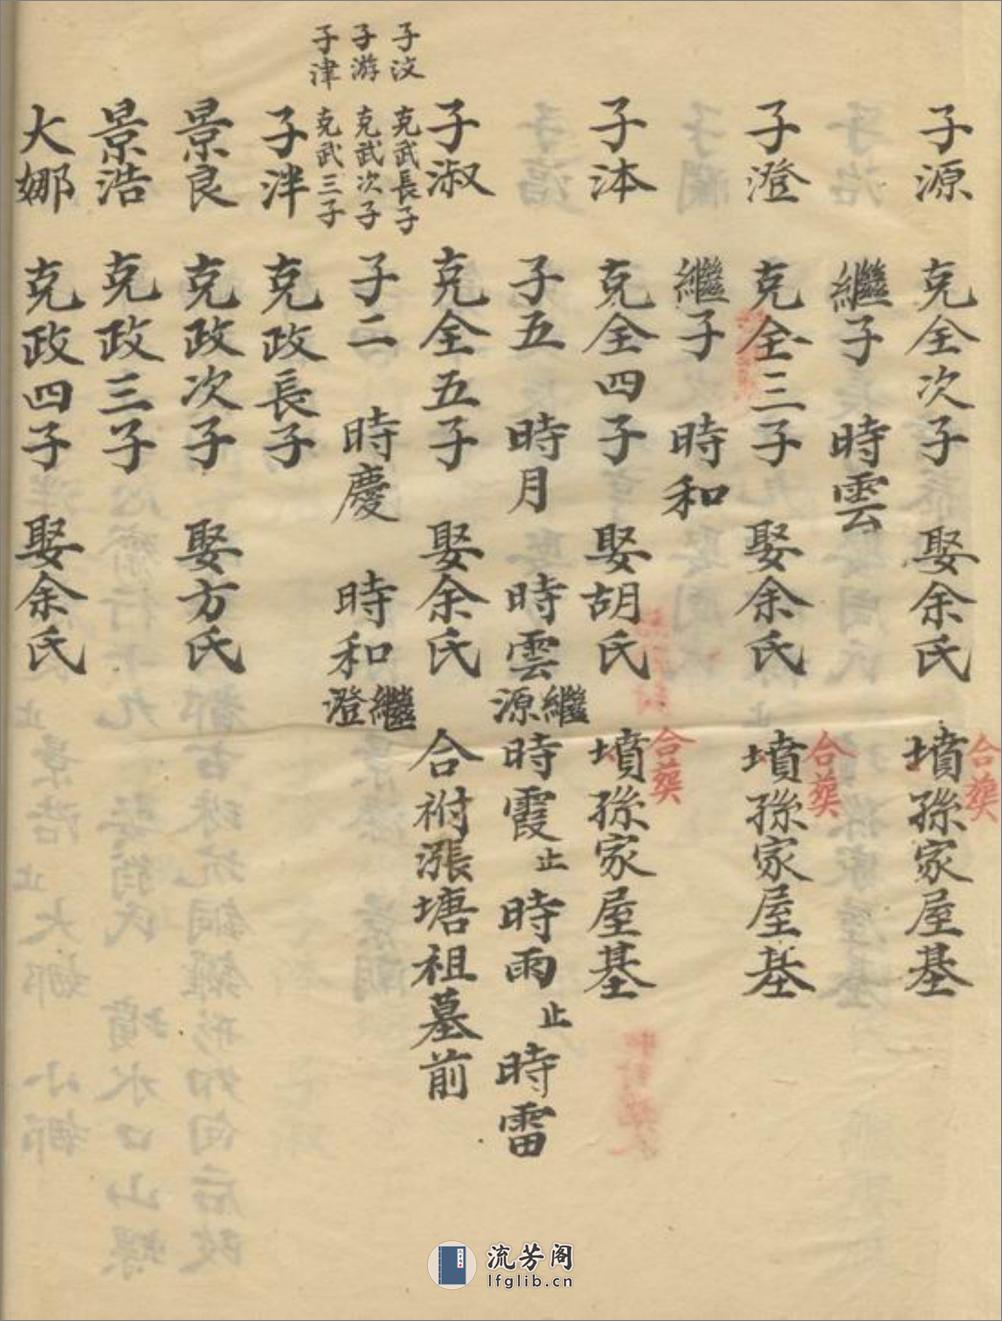 子源 克全次子 娶余氏 墳孫家屋基 合葬
繼子 時雲
子澄 克全三子 娶余氏 墳孫家屋基 合葬
繼子 時和
子泍 克全四子 娶胡氏 墳孫家屋基 合葬
子五 時月 時雲繼源 時霞止 時雨止 時雷
子淑 克全五子 娶余氏 合祔漲塘祖墓前
子二 時慶 時和繼澄
子汶 克武長子
子游 克武次子
子津 克武三子
子泮 克政長子
景良 克政次子 娶方氏
景浩 克政三子
大娜 克政四子 娶余氏
流芳阁
lfglib.cn